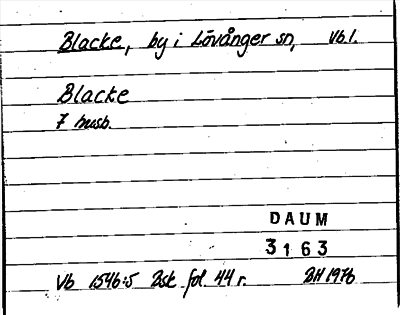 Blacke, by i Lövånger sn, Vb l.
Blacke
7 husb.
DAUM
3163
Vb 1546:5 Bsk fol. 44 r. BH 1976